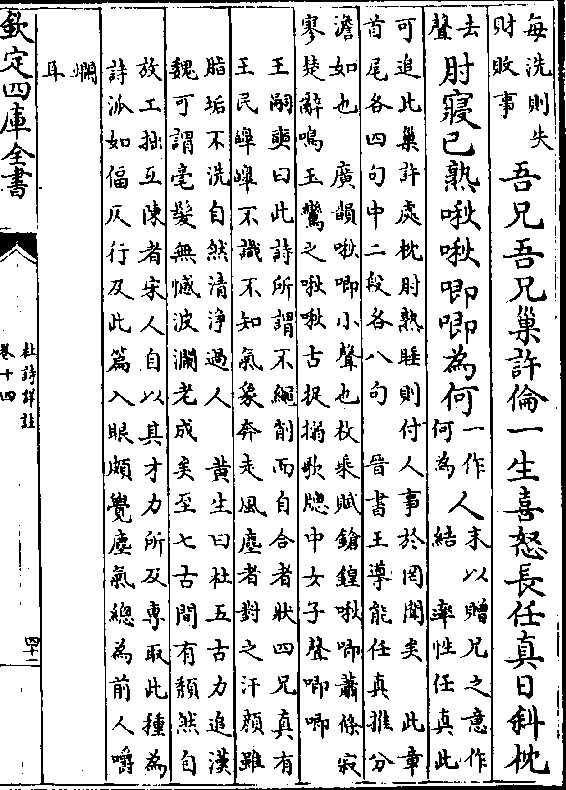 每洗則失
財敗事
吾兄吾兄巢許倫一生喜怒長任真日斜枕
去
聲
肘寢已熟啾啾唧唧為何
一作
何為
人
末以贈兄之意作
結 率性任真此
可追此巢許處枕肘熟睡則付人事於罔聞矣 此章
首尾各四句中二段各八句 晉書王導能任真推分
澹如也 廣韻啾唧小聲也枚乘賦鎗鍠啾唧蕭條寂
寥楚辭鳴玉鸞之啾啾古捉搦歌牕中女子聲唧唧
王嗣奭曰此詩所謂不繩削而自合者狀四兄真有
王民皞皞不識不知氣象奔走風塵者對之汗顏雖
脂垢不洗自然清淨過人 黃生曰杜五古力追漢
魏可謂毫髮無憾波瀾老成矣至七古間有頹然自
放工拙互陳者宋人自以其才力所及專取此種為
詩派如偪仄行及此篇入眼頗覺塵氣總為前人嚼
爛
耳
欽定四庫全書
杜詩詳註
卷十四
四十二